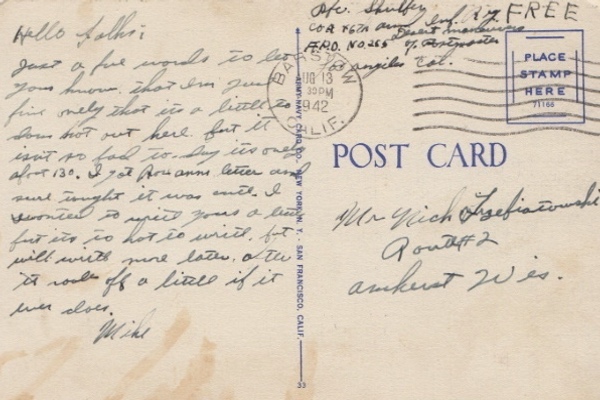 Hello Folks:
Just a few words to let
you know that Im just
fine only that its a little to
dam hot out here. but it
isn't so bad to-day its only
abot 130. I got Rosanns letter and
sure tought it was cute. I
wonted to write yours a letter
but its to hot to write. but
will write more later. after
it cools off a little if it
ever does.
Mike
Pfc.
Co A 76th Inf.
A.P.O. No. 265 Desert maneuvers
% Postmaster
Los angeles Cal.
FREE
BARSTOW
AUG 13
PM
1942
CALIF.
PLACE
STAMP
HERE
71166
POST CARD
Mr Nick
Route #2
Amherst Wis.
ARMY-NAVY CARD CO. NEW YORK, N. Y. - SAN FRANCISCO, CALIF.
33